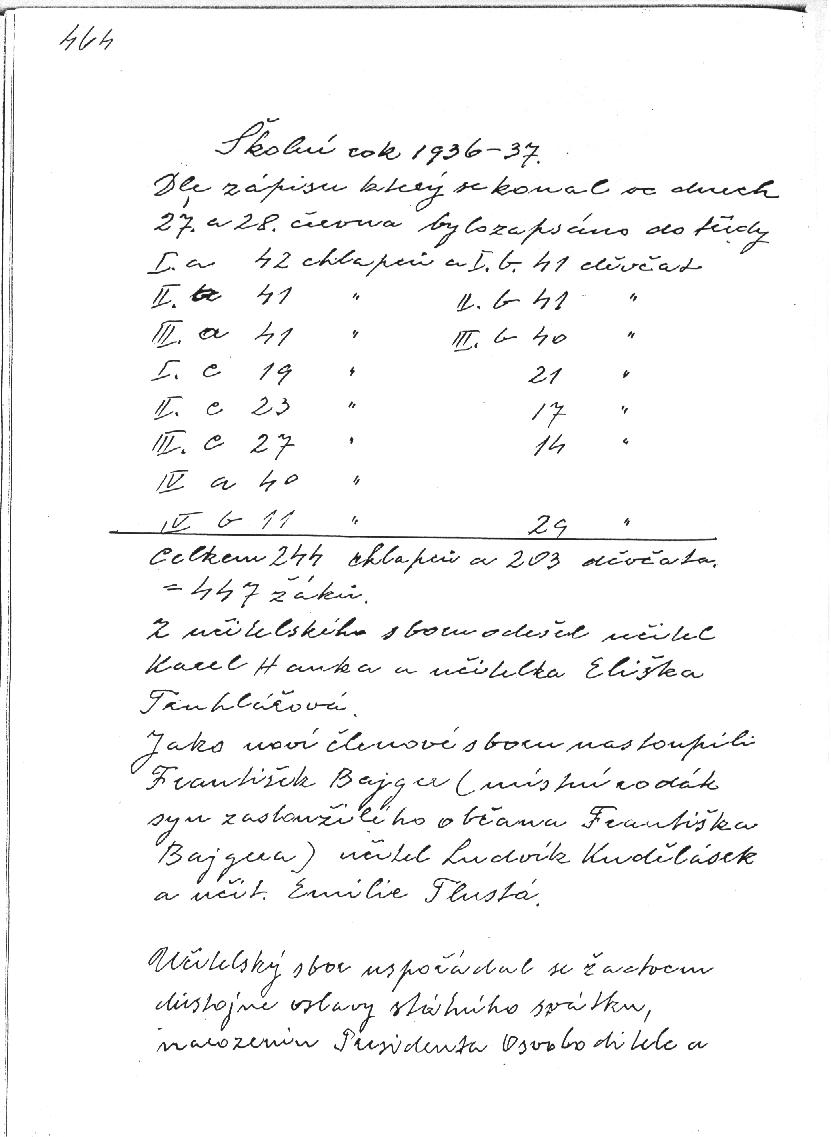 464
Školní rok 1936-37.
Dle zápisu který se konal ve dnech
27. a 28. června bylo zapsáno do třídy
I. a 42 chlapců a I. b. 41 děvčat
II. a 41 " II. b 41 "
III. a 41 " III. b 40 "
I. c 19 " 21 "
II. c 23 " 17 "
III. c 27 " 14 "
IV a 40 "
IV b 11 " 29 "
Celkem 244 chlapců a 203 děvčata.
= 447 žáků.
Z učitelského sboru odešel učitel
Karel Hanka a učitelka Eliška
Truhlářová.
Jako noví členové sboru nastoupili
František Bajger (místní rodák
syn zasloužilého občana Františka
Bajgera) učitel Ludvík Kudělásek
a učit. Emilie Tlustá.
Učitelský sbor uspořádal se žactvem
důstojné oslavy státního svátku,
narozenin Presidenta Osvoboditele a